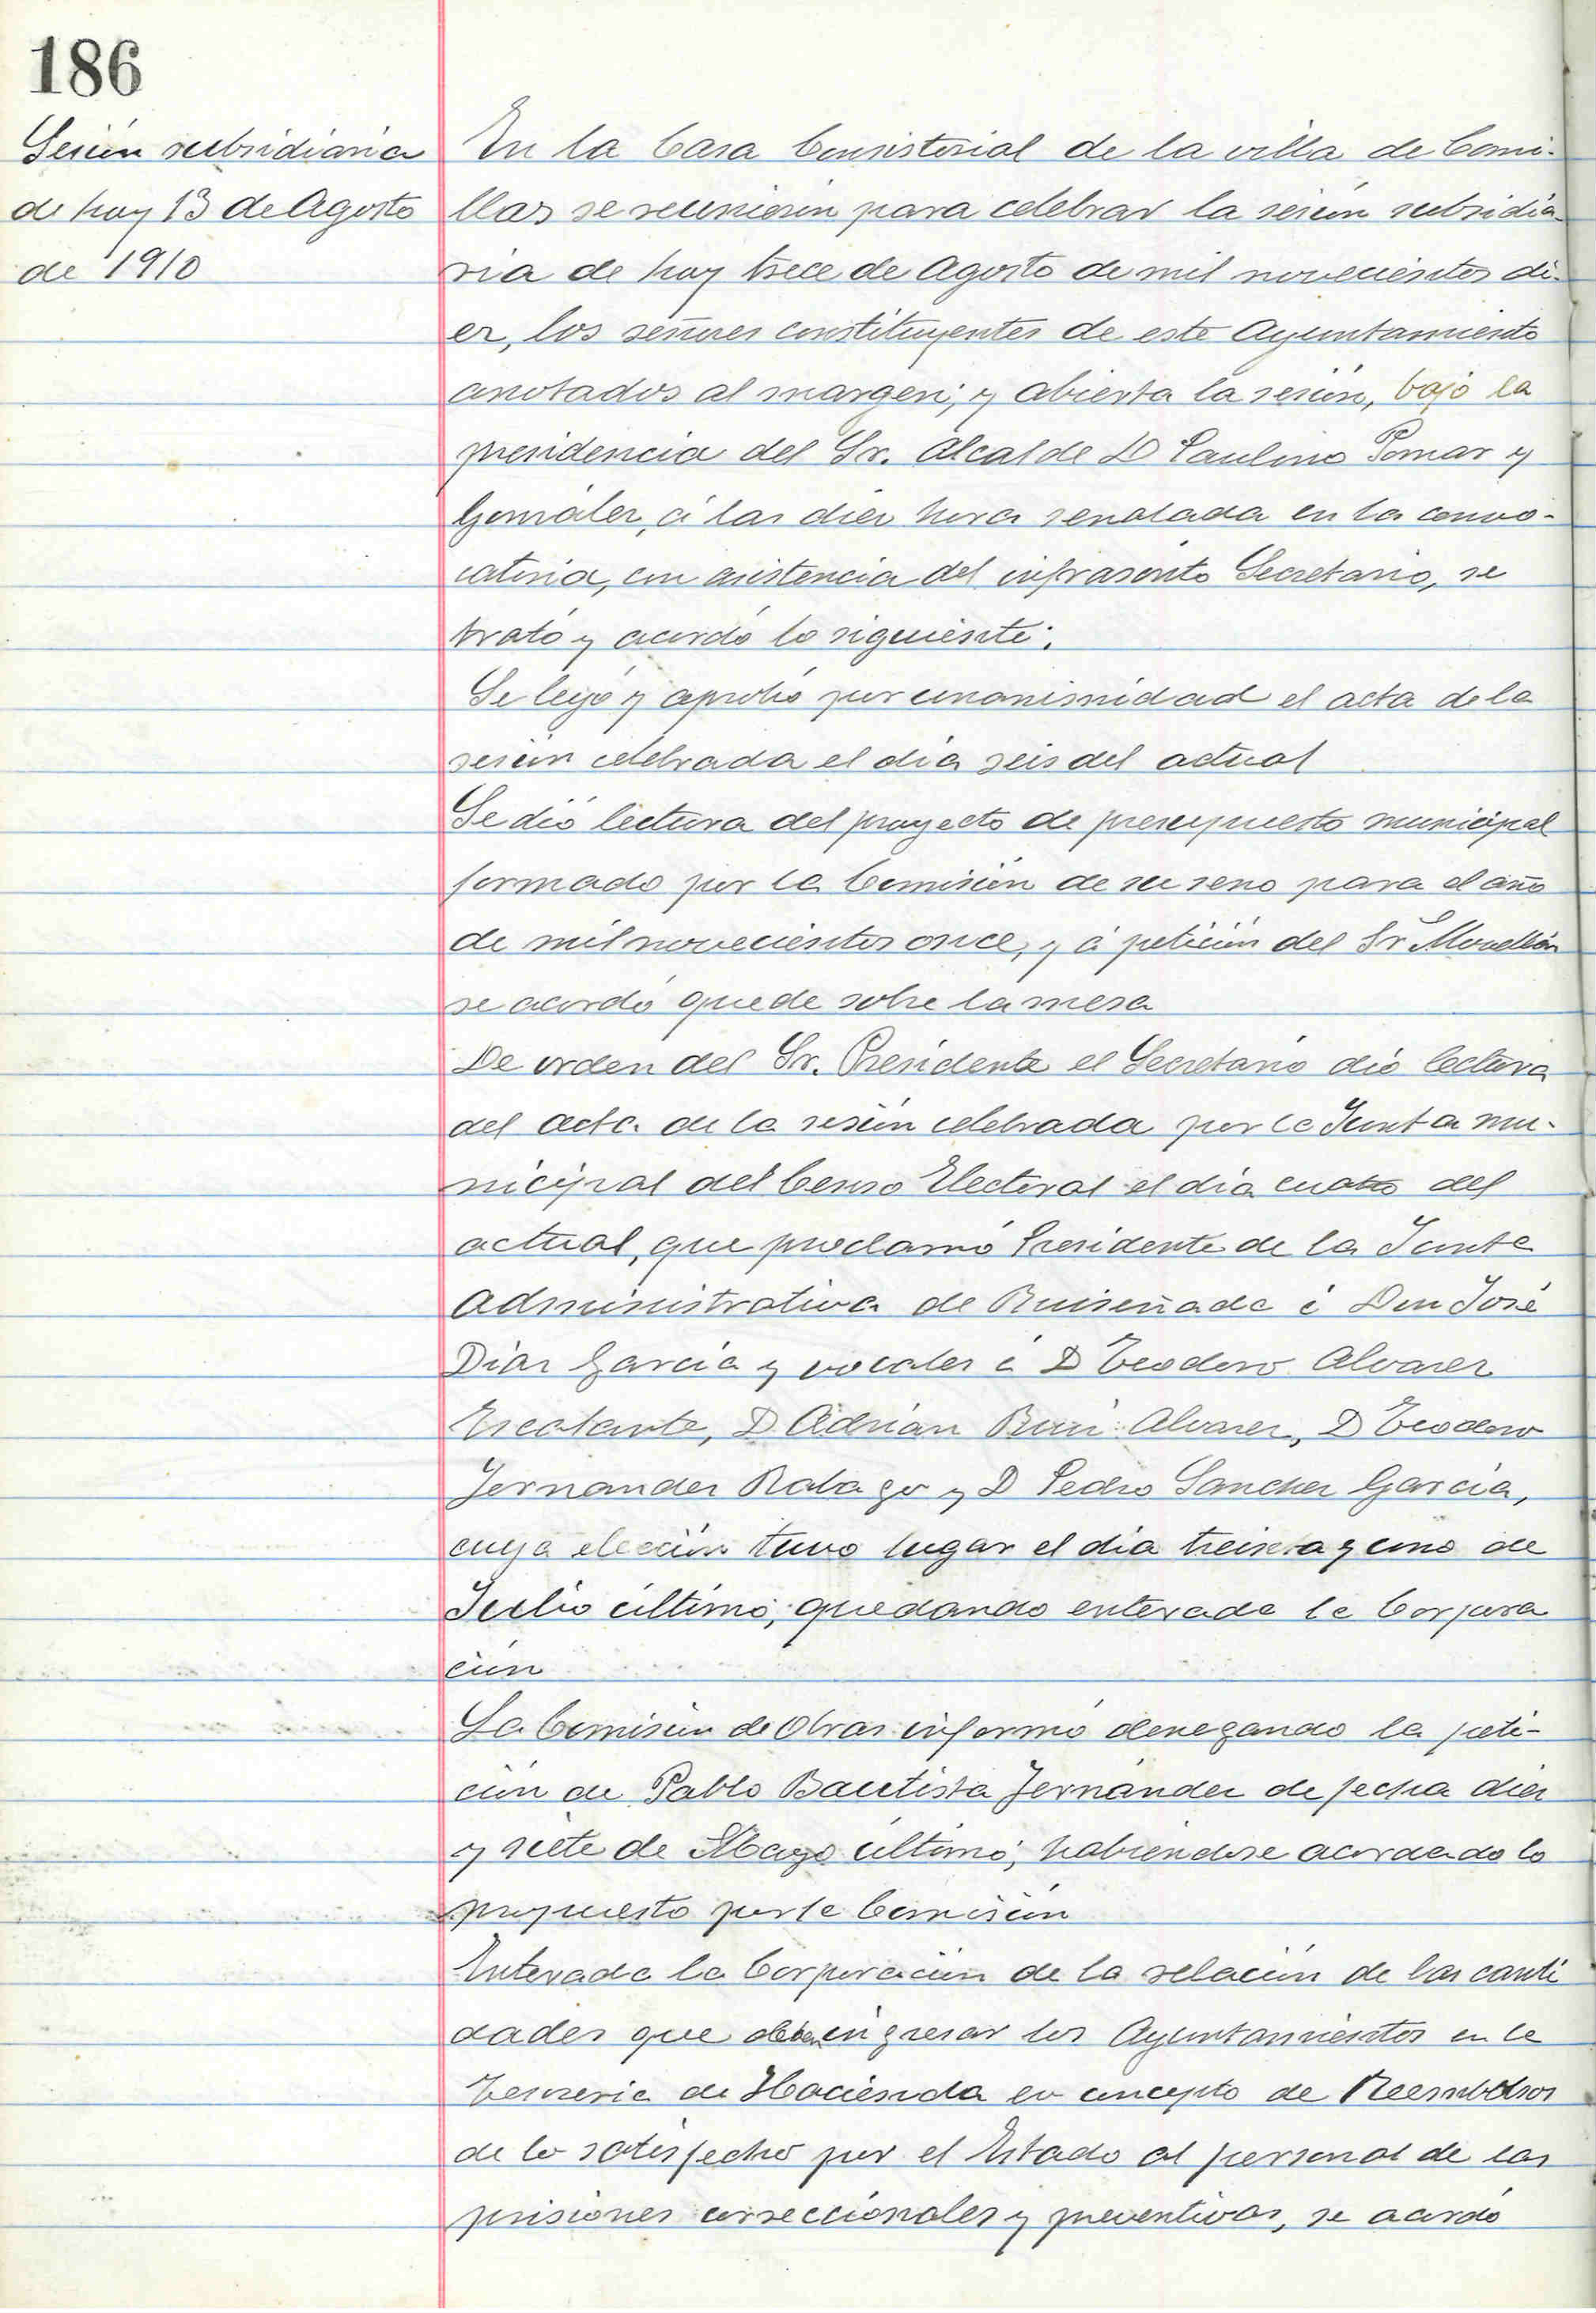 186
Sesión subsidiaria
de hoy 13 de Agosto
de 1910
En la Casa Consistorial de la villa de Comi-
llas se reunieron para celebrar la sesión subsidia-
ria de hoy trece de Agosto de mil novecientos di-
ez, los señores constituyentes de este Ayuntamiento
anotados al margen; y abierta la sesión, bajo la
presidencia del Sr. Alcalde D Paulino Pomar y
González, á las diez hora señalada en la convo-
catoria, con asistencia del infrascrito Secretario, se
trató y acordó lo siguiente:
Se leyó y aprobó por unanimidad el acta de la
sesión celebrada el día seis del actual
Se dió lectura del proyecto de presupuesto municipal
formado por la Comisión de su seno para el año
de mil novecientos once, y á petición del Sr Movellán
se acordó quede sobre la mesa
De orden del Sr. Presidente el Secretario dió lectura
del acta de la sesión celebrada por la Junta mu-
nicipal del Censo Electoral el día cuatro del
actual, que proclamó Presidente de la Junta
Administrativa de Ruiseñada á Don José
Diaz García y vocales á D Teodoro Alvarez
Escalante, D Adrián Ruiz Alvarez, D Teodoro
Fernandez Rabago y D Pedro Sanchez García,
cuya elección tuvo lugar el día treinta y uno de
Julio último; quedando enterada la Corpora
ción
La Comisión de Obras informó denegando la peti-
ción de Pablo Bautista Fernández de fecha diez
y siete de Mayo último; habiendose acordado lo
propuesto por la Comisión
Enterada la Corporación de la relación de las canti
dades que deben ingresar los Ayuntamientos en la
Tesorería de Hacienda en concepto de Reembolsos
de lo satisfecho por el Estado al personal de las
prisiones correccionales y preventivas, se acordó